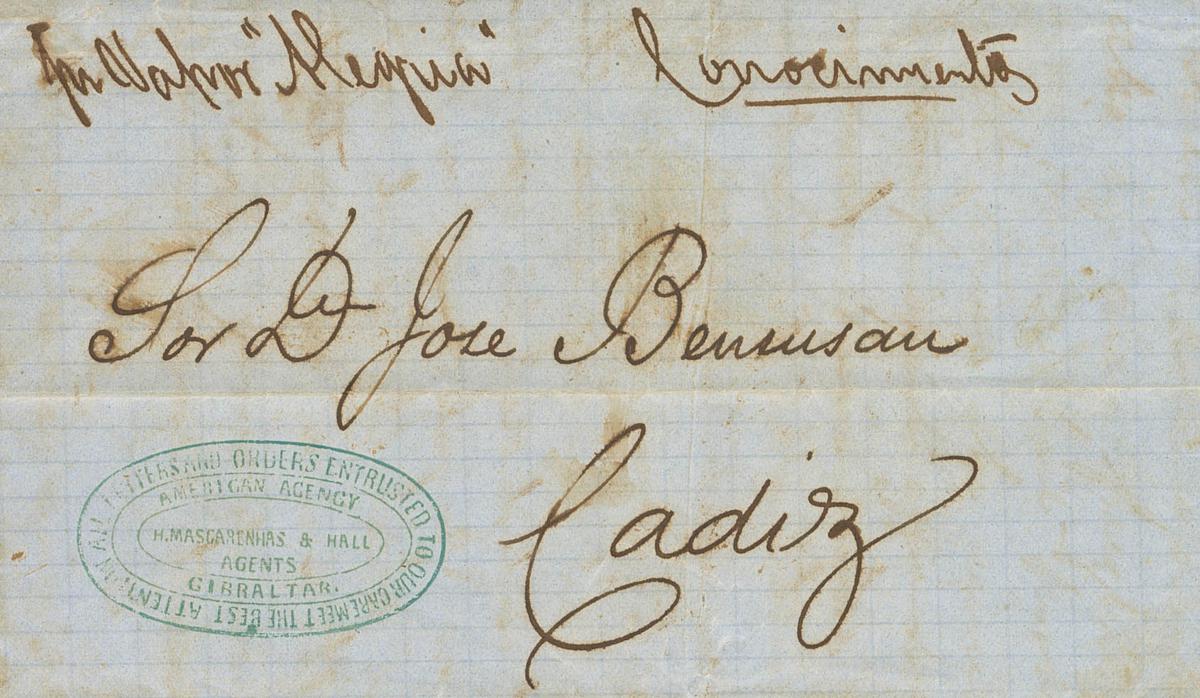 Por Vapor "Alegria" Conocimientos
Sor Dn Jose Bensusan
Cadiz
ALL LETTERS AND ORDERS ENTRUSTED TO OUR CARE MEET THE BEST ATTENTION
AMERICAN AGENCY
H. MASCARENHAS & HALL
AGENTS
GIBRALTAR.